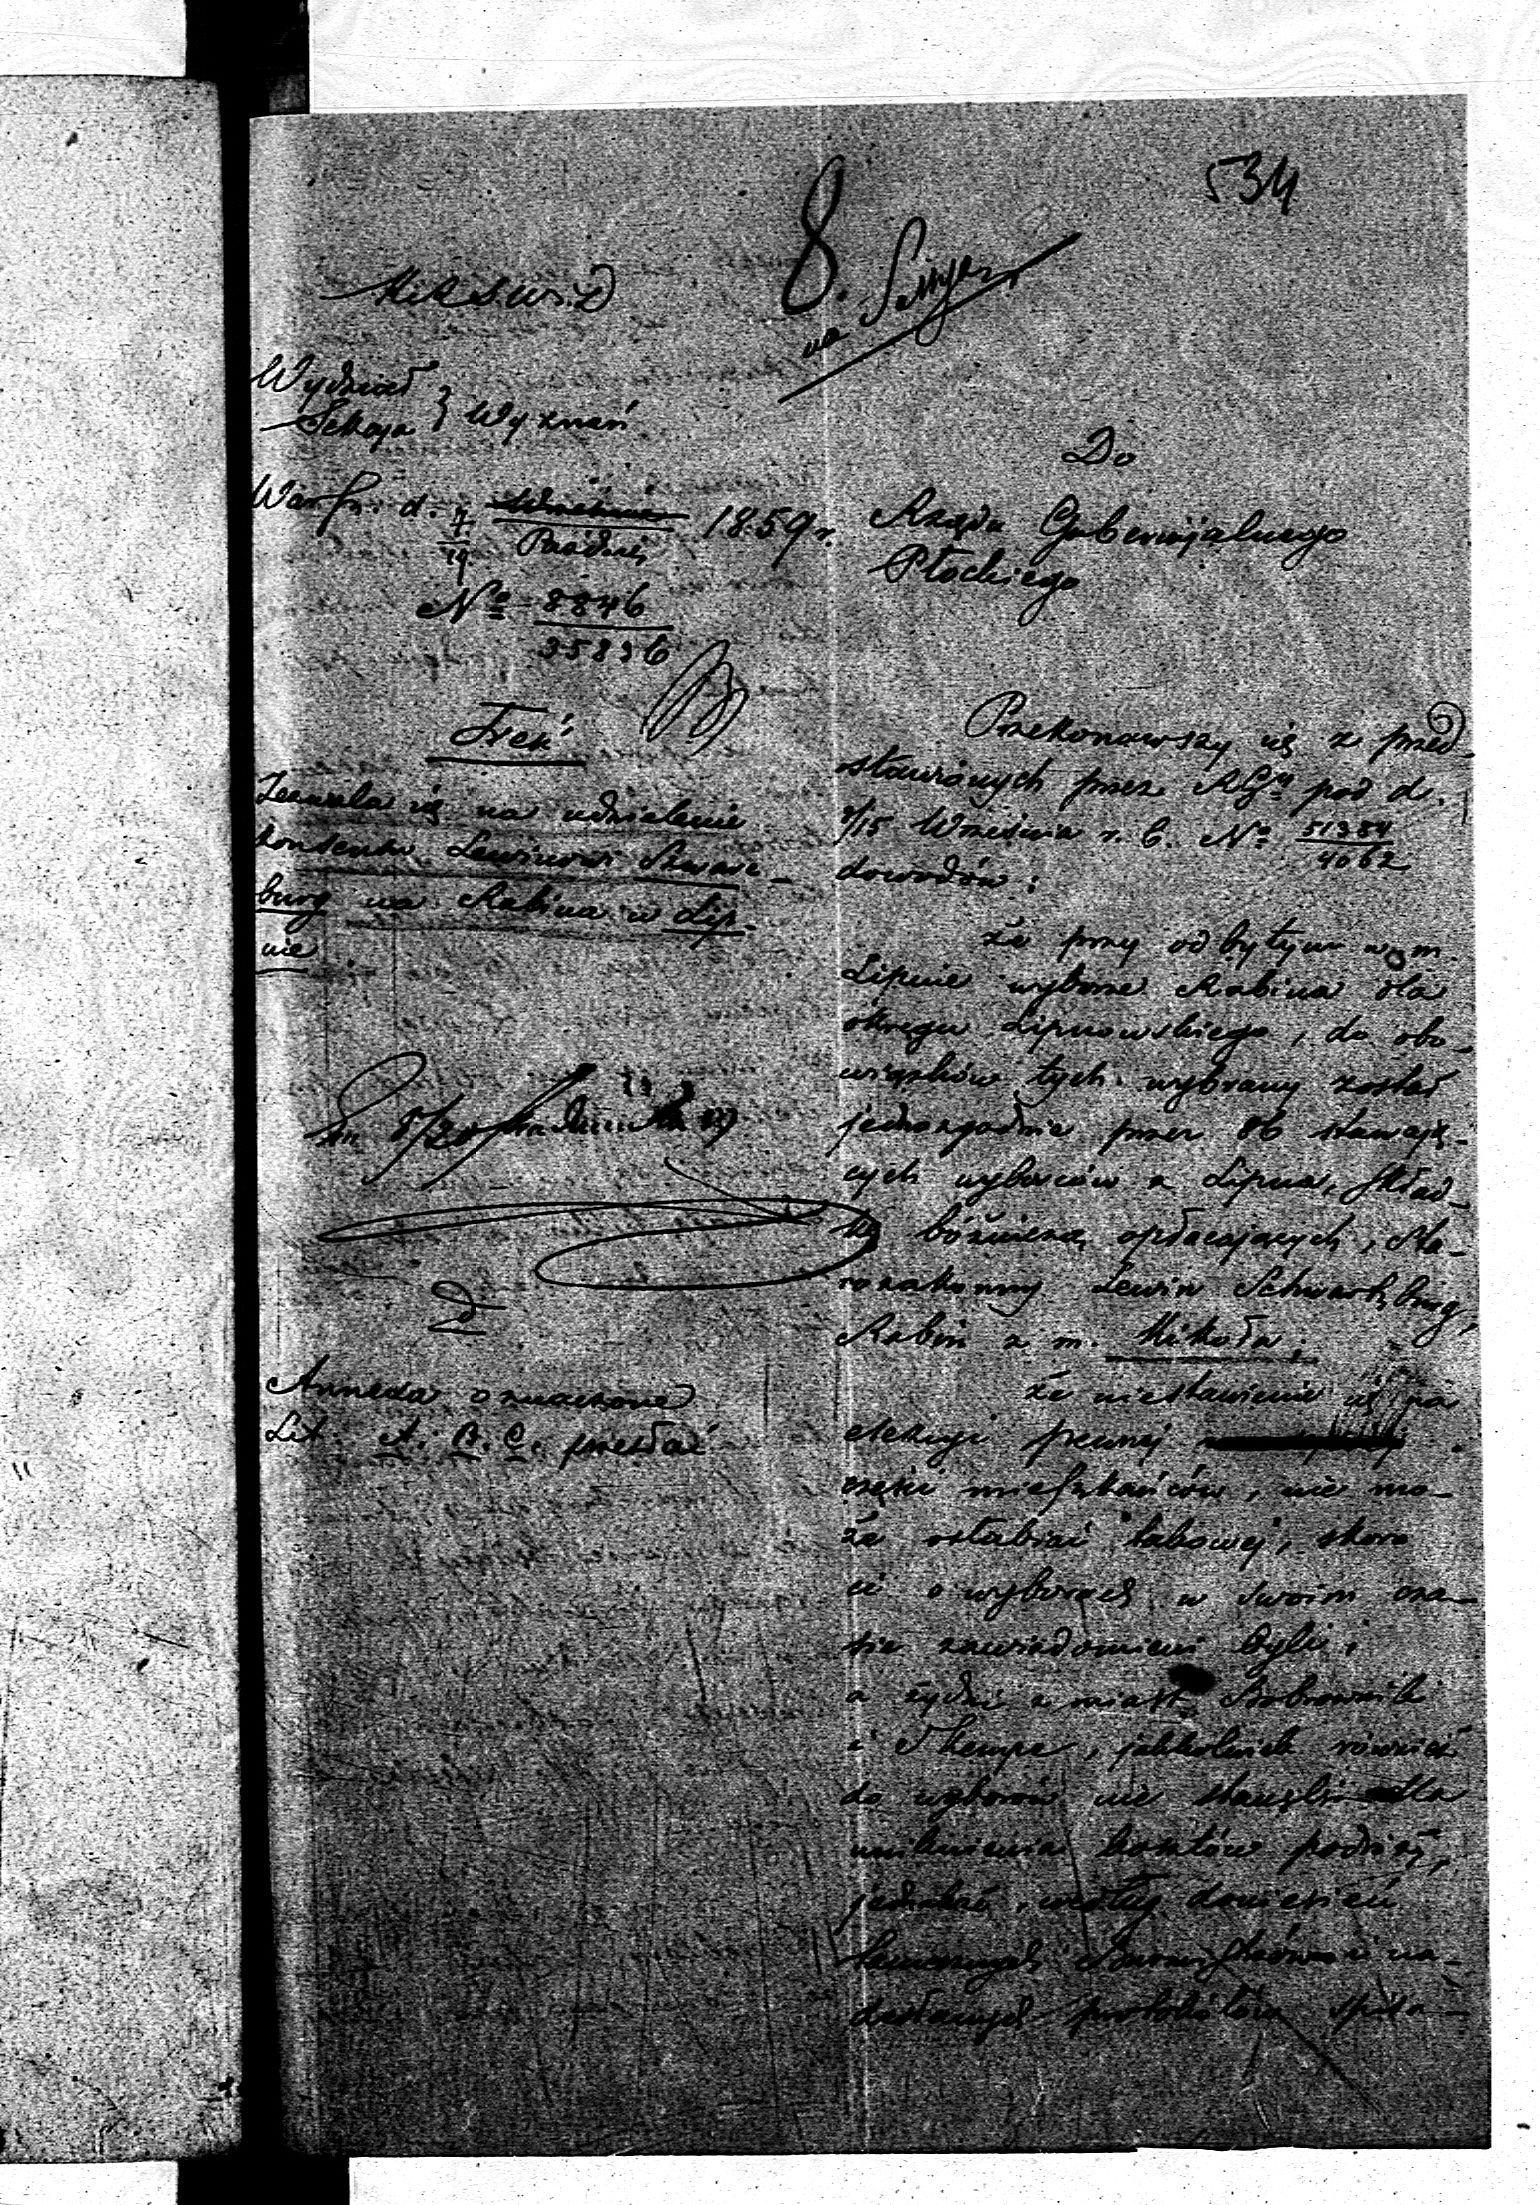 534
8.
na Sessyą
K.R.S.W. i D
Wydział
Sekcja } Wyznań
Warsz. d. 7/19 Września Paździer. 1859 r.
No 8846
35836
Do
Rządu Gubernijalnego
Płockiego
Treść
Zezwala się na udzielenie
konsensu Lewinowi Szwarc-
burg na Rabina w Lip-
nie.
dn 8/20 Października
Annexa oznaczone
Lit. A. B. C. przesłać
Przekonawszy się z przed-
stawionych przez RGny pod d.
3/15 Września r. b. No 51354
4062
dowodów:
że przy odbytym w m.
Lipnie wyborze Rabina dla
okręgu Lipnowskiego, do obo-
wiązków tych wybrany został
jednozgodnie przez 86 stawają-
cych wyborców z Lipna, skład-
kę bóżniczą opłacających, Sta-
rozakonny Lewin Schwartzburg,
Rabin z m. Kikoła;
że niestawienie się na
elekcyi pewnej
części mieszkańców, nie mo-
że osłabiać takowej, skoro
ci o wyborach w swoim cza-
sie zawiadomieni byli i
a żydzi z miast Bobrowniki
i Skempe, jakkolwiek również
do wyborów nie stanęli dla
uniknienia kosztów podróży,
jednakże, według doniesień
tamecznych Burmistrzów i na-
desłanych protokułów spisa-